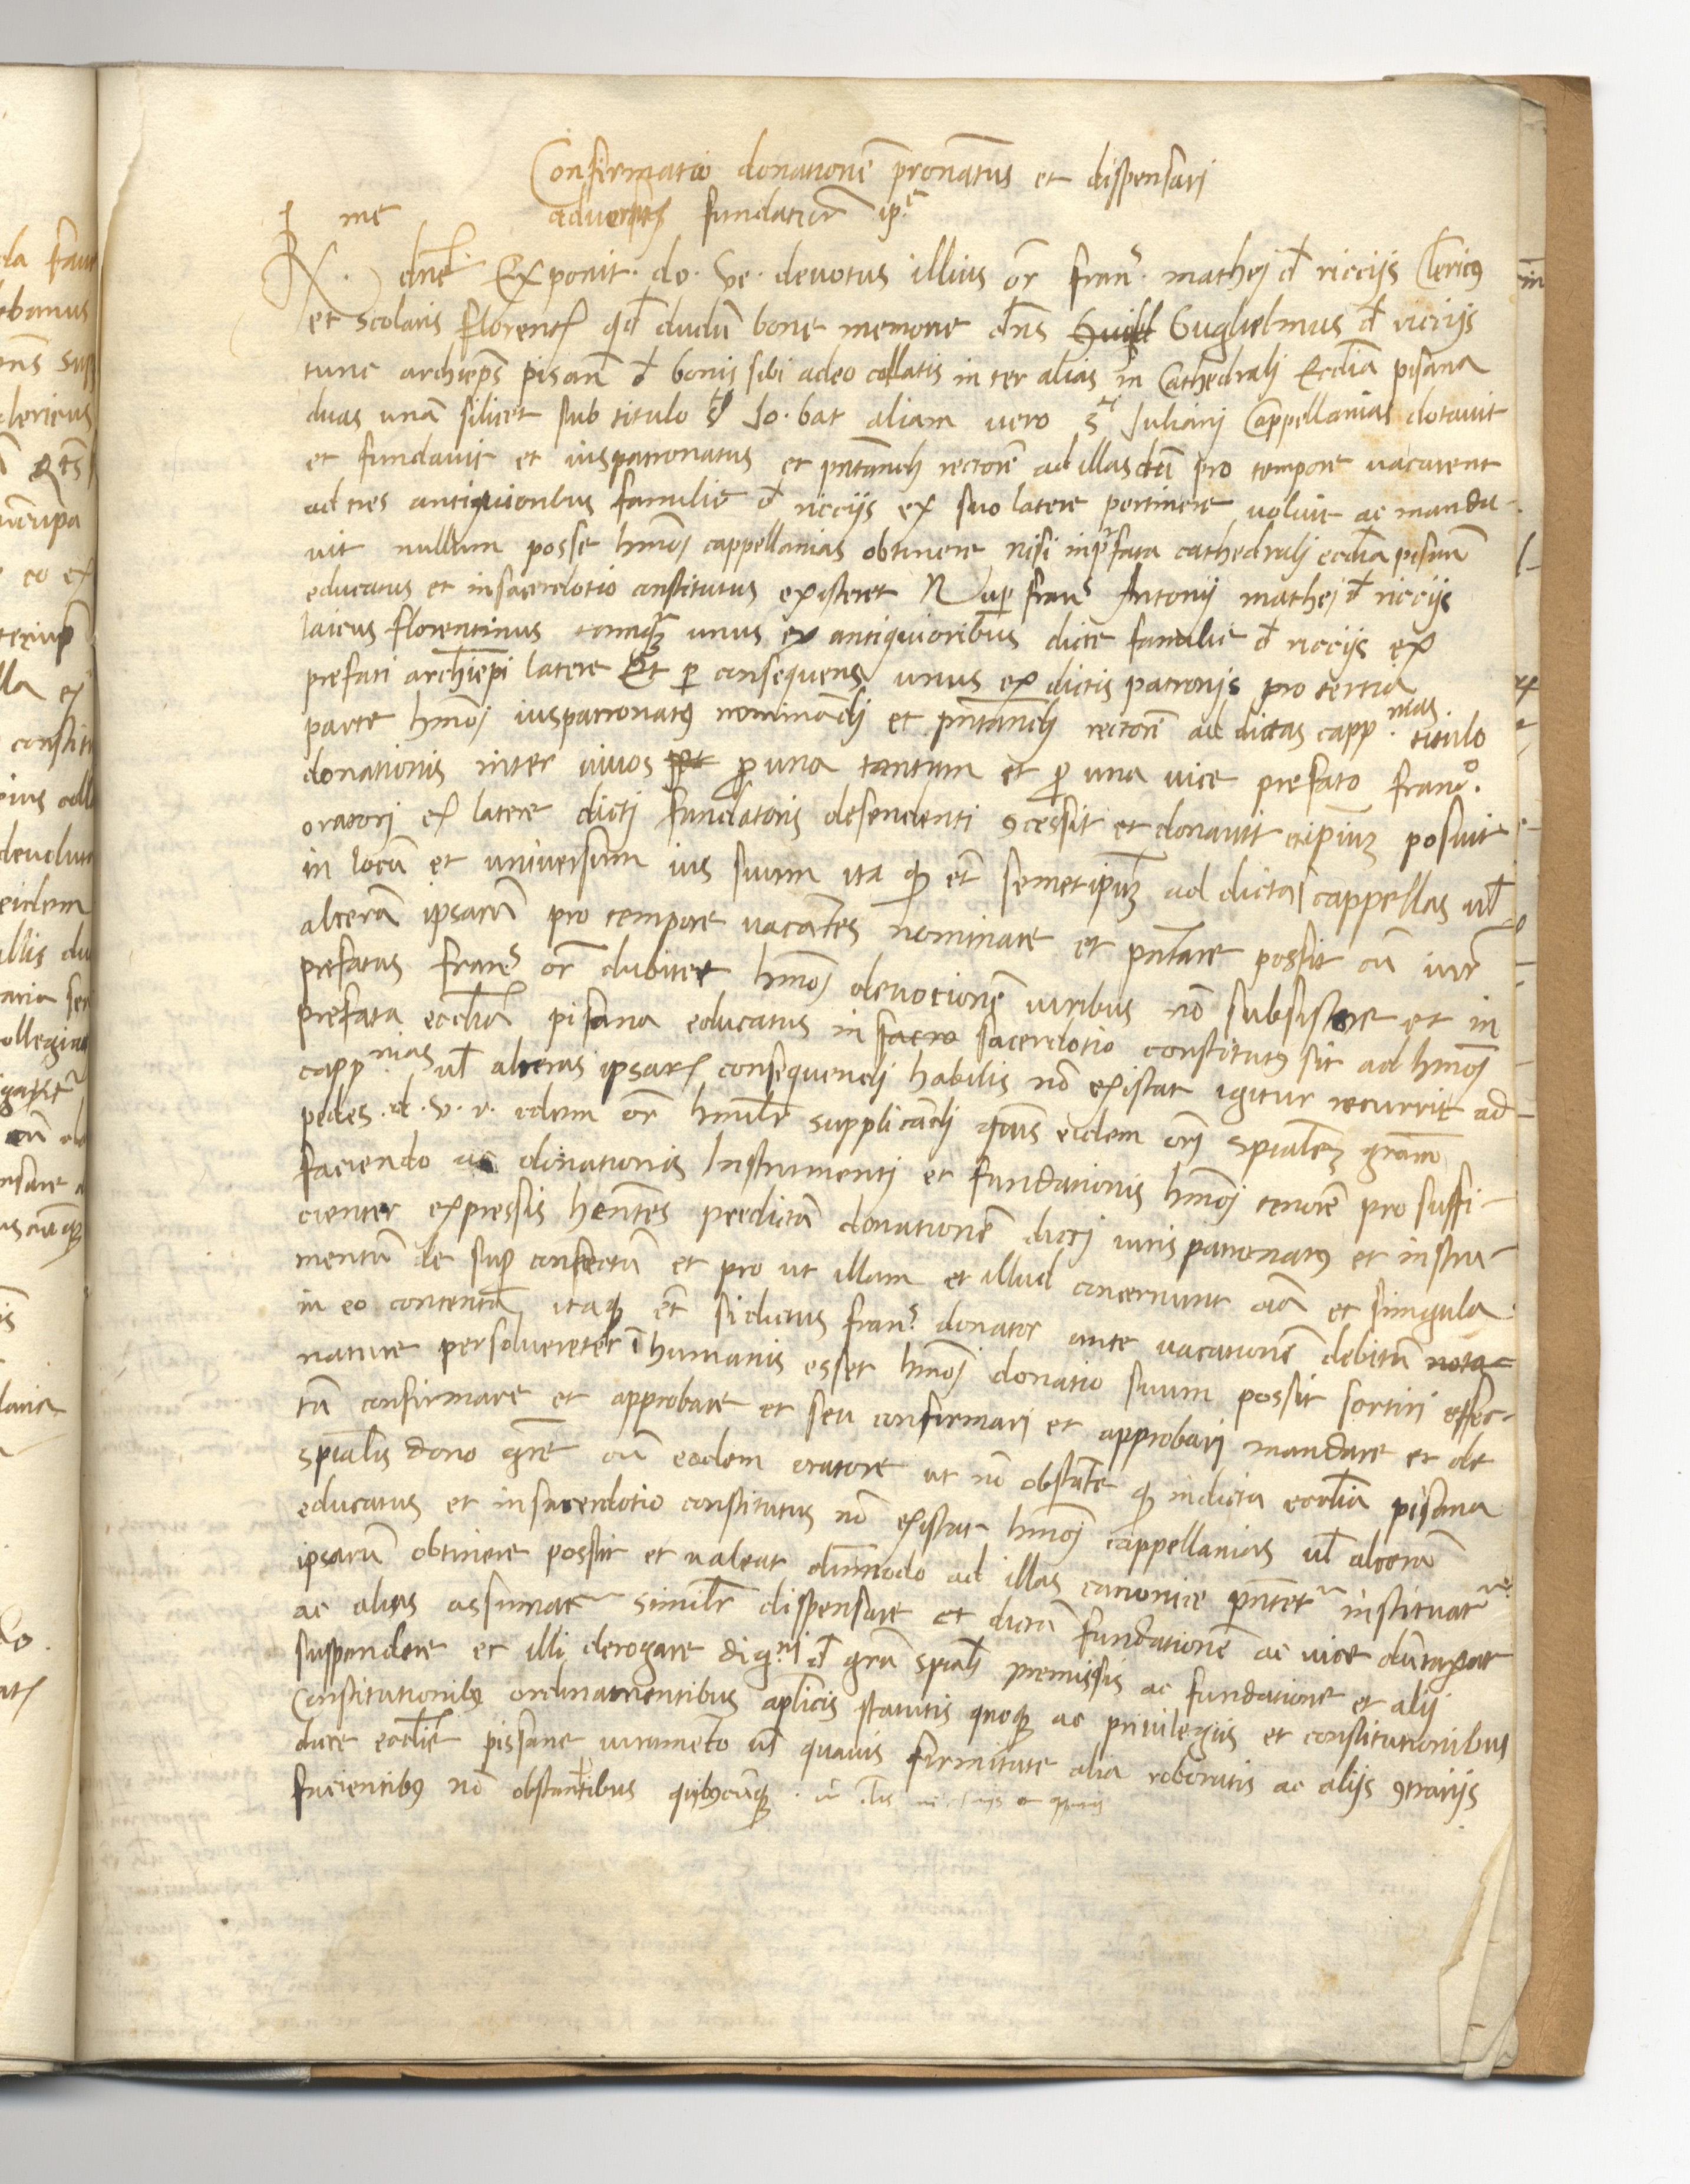 Confirmatio donationẽ pronatus et dispensari
adversus fundationẽ
me
R. dñe Exponit. do. Ve. devotus illius or̃ frans. mathej d̃ ricciis Clericus
et Scolaris florentĩ qd̃ dudũ bone memorie dñs Guglielmus d̃ ricciis
tunc archiepũs pisanũ d̃ bonis sibi adeo collatis inter alias in Cathedralj Ecclĩa pisana
duas unã silicet sub titulo sti Jo. bat aliam vero sti Julianj Cappellanias dotavit
et fundavit et iuspatronatus et pñtandj rectorẽ ad illas dũ pro tempore vacarent
ad tres antiquioribus familie d̃ ricciis ex suo latere pertinere voluit ac manda-
vit nullum posse hmõj cappellanias obtinere nisi in p̃fata cathedralj ecclĩa pisana
educatus et in sacerdotio constitutus existeret Nup̃ frans Antonij mathej d̃ ricciis
laicus florentinus tamq̃ unus ex antiquioribus dicte familie d̃ ricciis ex
prefati archiepĩ latere Et p consequens unus ex dictis patronis pro tertia
parte hmõj iuspatronatus nominãdj et pñtandj rectorẽ ad dictas capp.nias titulo
donationis inter vivos pro una tantum et pro una vice prefato franco.
oratori ex latere dictj fundatoris desendenti 9cessit et donavit eũ ipsũm posuit
in locũ et universum ius suum ita q et semetipsũm ad dictas cappellas ul̃
alterã ipsarũ pro tempore vacãtes nominare et pñtare possit cũ iur̃
prefatus frans or̃ dubitet hmõj devotionẽ viribus nõ subsistere et in
prefata ecclĩa pisana educatus in sacro sacerdotio constitutus sit ad hmõj
capp.nias ul̃ alteras ipsarũ consequendj habilis nõ existat igitur recurrit ad
pedes. d. v. r. idem or̃ humilr̃ supplicãdj qtẽnus eidem orj spialem grãm
faciendo ac donationis Instrumenti et fundationis hmõj tenorẽ pro suffi-
cienter expressis hẽntes predictã donationẽ dictj iuris patronatus et instru-
mentũ de sup confectũ et pro ut illam et illud concernunt oĩa et singula
in eo contenta, itaq et si dictus frans. donator ante vacationẽ debitũ nota-
nature persolveretet ĩ humanis esset hmõj donatio suum possit sortiri effec-
tũ confirmare et approbare et seu confirmari et approbari mandare et de
spialis dono gr̃e cũ eodem oratore ut nõ obstãte q in dicta ecclĩa pisana
educatus et in sacerdotio constitutus nõ existat hmõj cappellanias ul̃ alterã
ipsarũ obtinere possit et valeat dũmodo ad illas canonice pñtetr instituatr
ac alias assumatr similr̃ dispensare et dictã fundationẽ ac vice dũtaxat
suspendere et illi derogare dig.ni d̃ grã spialj premissis ac fundatione et alij
Constitutionibus ordinamentibus aplicis statutis quoq ac privilegiis et constitutionibus
dicte ecclie pissane iuramẽto ul̃ quavis firmitate alia roboratis ac aliis 9trariis
facientibus nõ obstantibus quibuscũq.